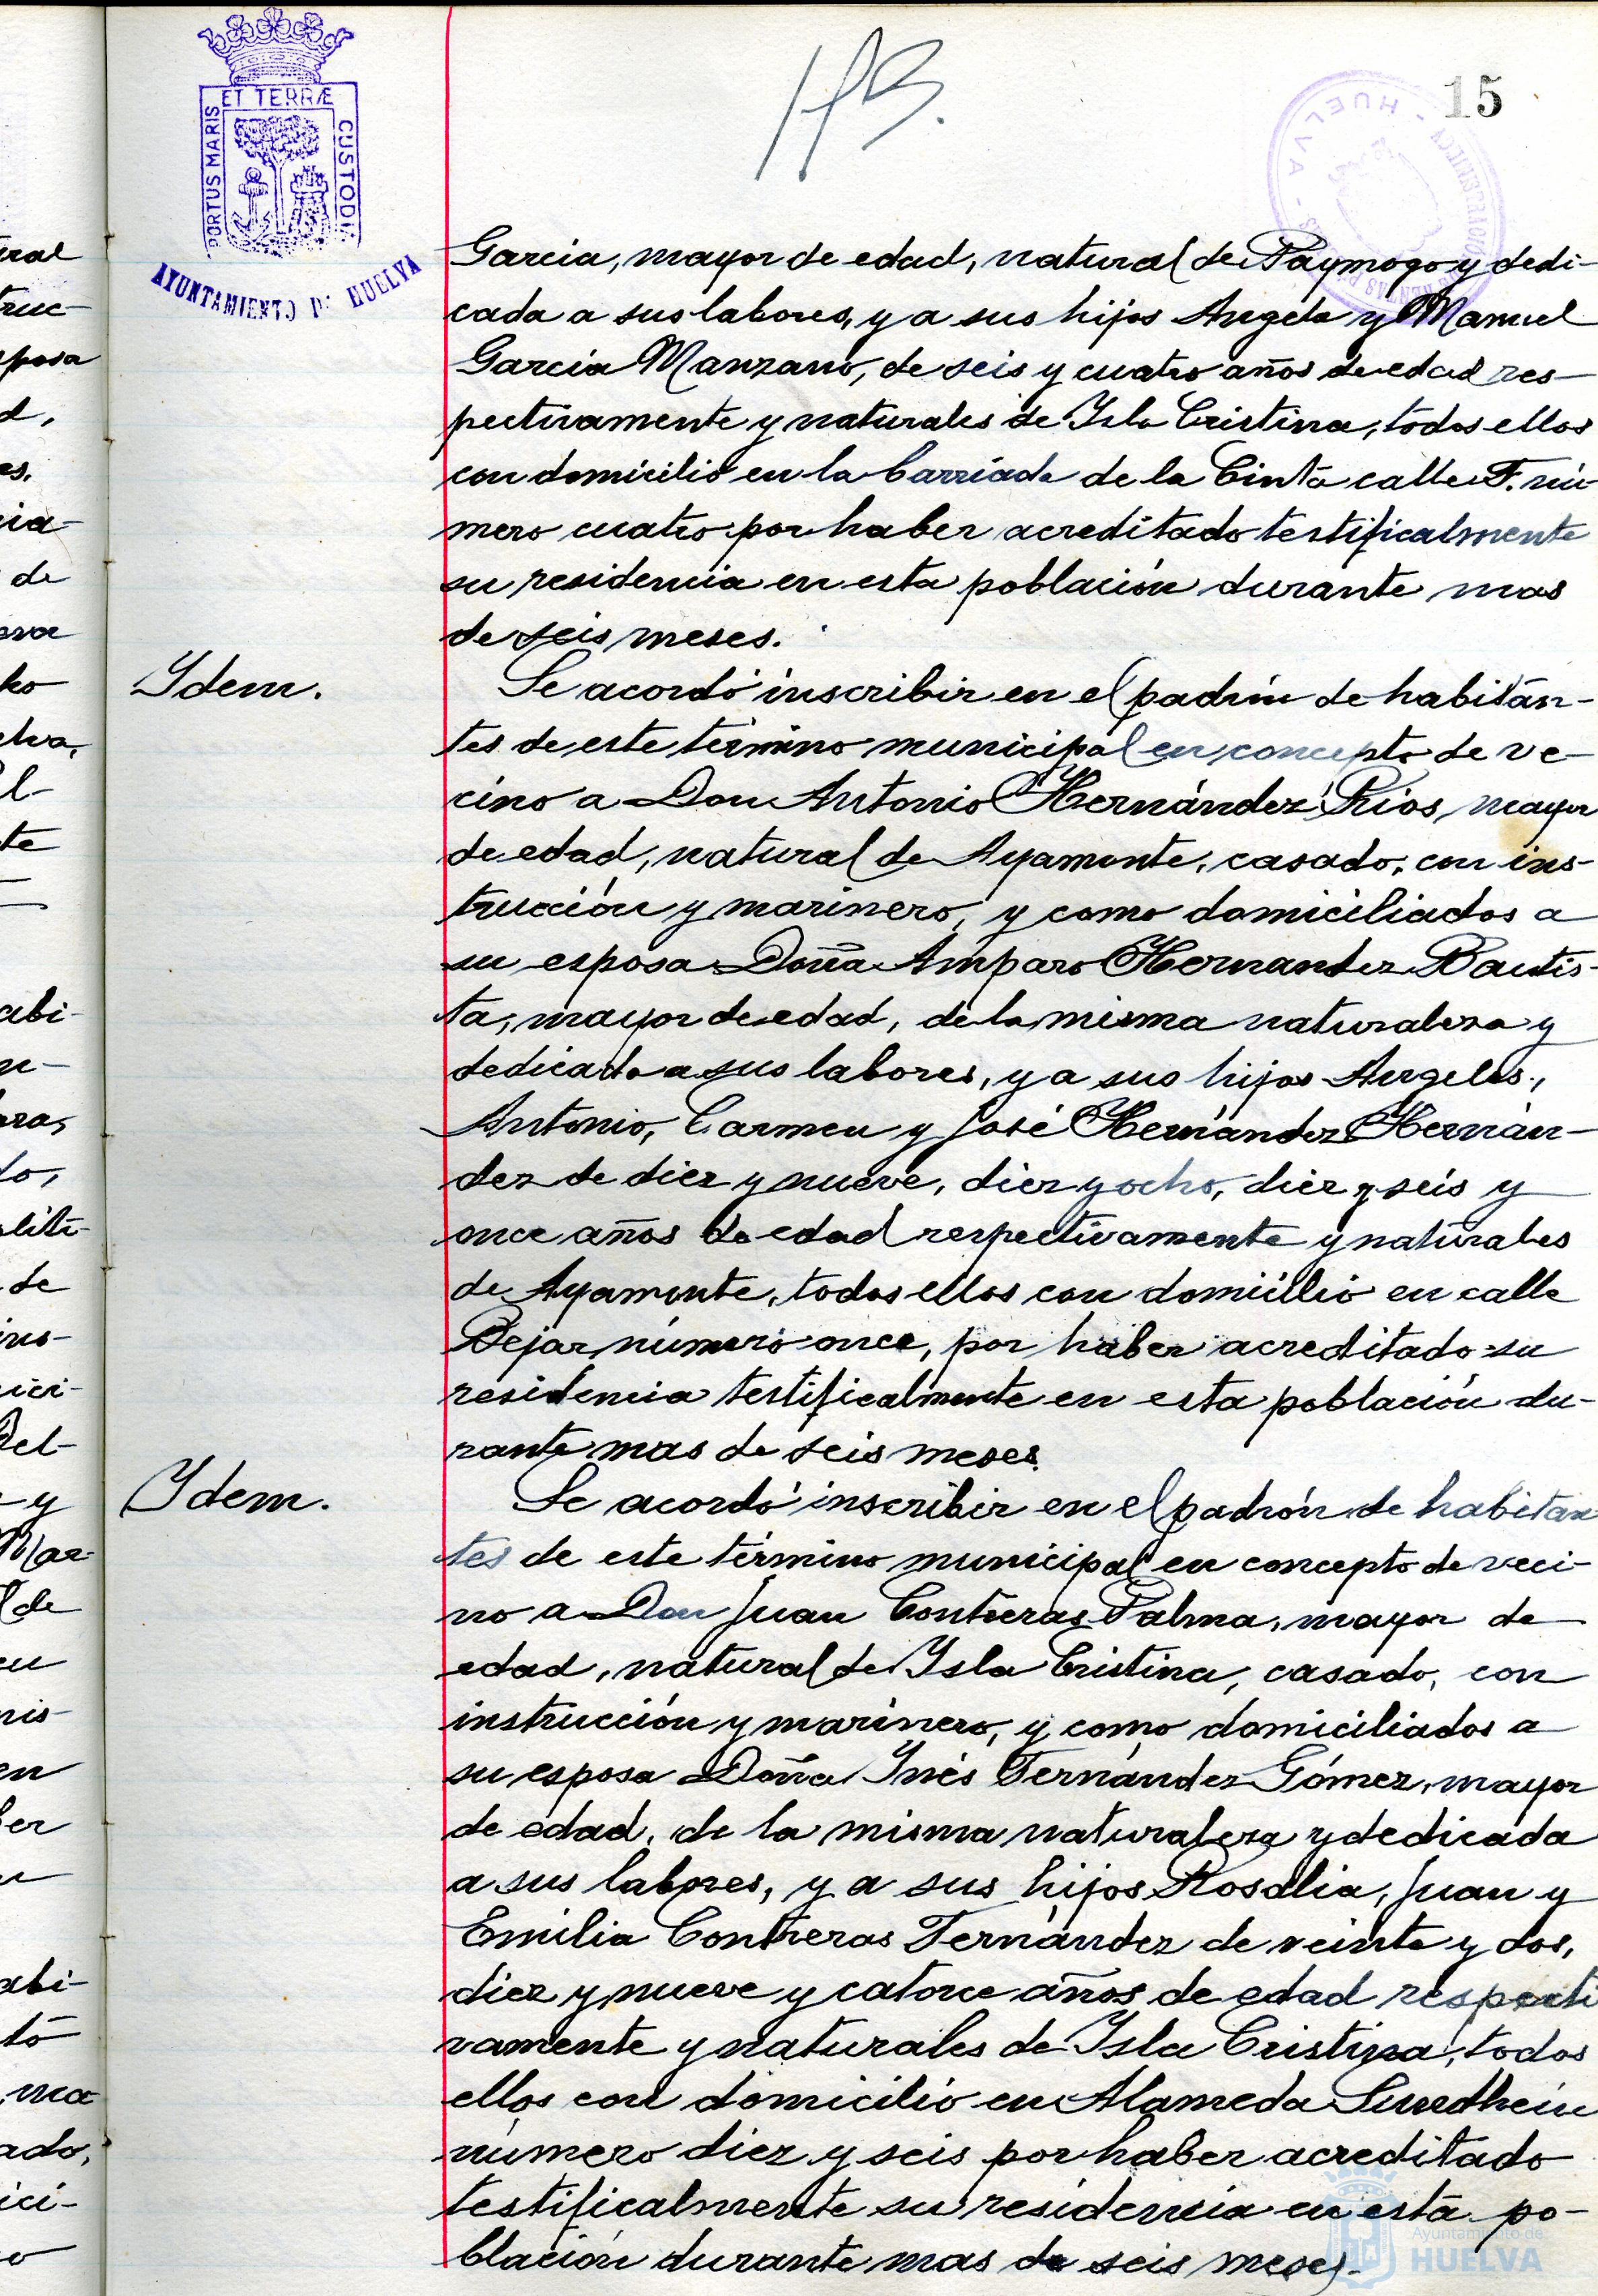 ET TERRÆ
PORTUS MARIS
CUSTODI
AYUNTAMIENTO DE HUELVA
15
HUELVA
Garcia, mayor de edad, natural de Paymogo y dedi-
cada a sus labores, y a sus hijos Angela y Manuel
Garcia Manzano, de seis y cuatro años de edad res-
pectivamente y naturales de Isla Cristina, todos ellos
con domicilio en la barriada de la Cinta calle F. nú-
mero cuatro por haber acreditado testificalmente
su residencia en esta población durante mas
de seis meses.
Ydem.
Se acordó inscribir en el padrón de habitan-
tes de este término municipal en concepto de ve-
cino a Don Antonio Hernández Rios, mayor
de edad, natural de Ayamonte, casado, con ins-
trucción y marinero, y como domiciliados a
su esposa Doña Amparo Hernandez Bautis-
ta, mayor de edad, de la misma naturaleza y
dedicada a sus labores, y a sus hijos Angeles,
Antonio, Carmen y José Hernández Hernán-
dez de diez y nueve, diez y ocho, diez y seis y
once años de edad respectivamente y naturales
de Ayamonte, todos ellos con domicilio en calle
Bejar número once, por haber acreditado su
residencia testificalmente en esta población du-
rante mas de seis meses.
Ydem.
Se acordó inscribir en el padrón de habitan
tes de este término municipal en concepto de veci-
no a Don Juan Contreras Palma, mayor de
edad, natural de Isla Cristina, casado, con
instrucción y marinero, y como domiciliados a
su esposa Doña Inés Fernández Gómez, mayor
de edad, de la misma naturaleza y dedicada
a sus labores, y a sus hijos Rosalia, Juan y
Emilia Contreras Fernández de veinte y dos,
diez y nueve y catorce años de edad respecti
vamente y naturales de Isla Cristina, todos
ellos con domicilio en Alameda Sundhein
número diez y seis por haber acreditado
testificalmente su residencia en esta po-
blación durante mas de seis meses.
Ayuntamiento de
HUELVA